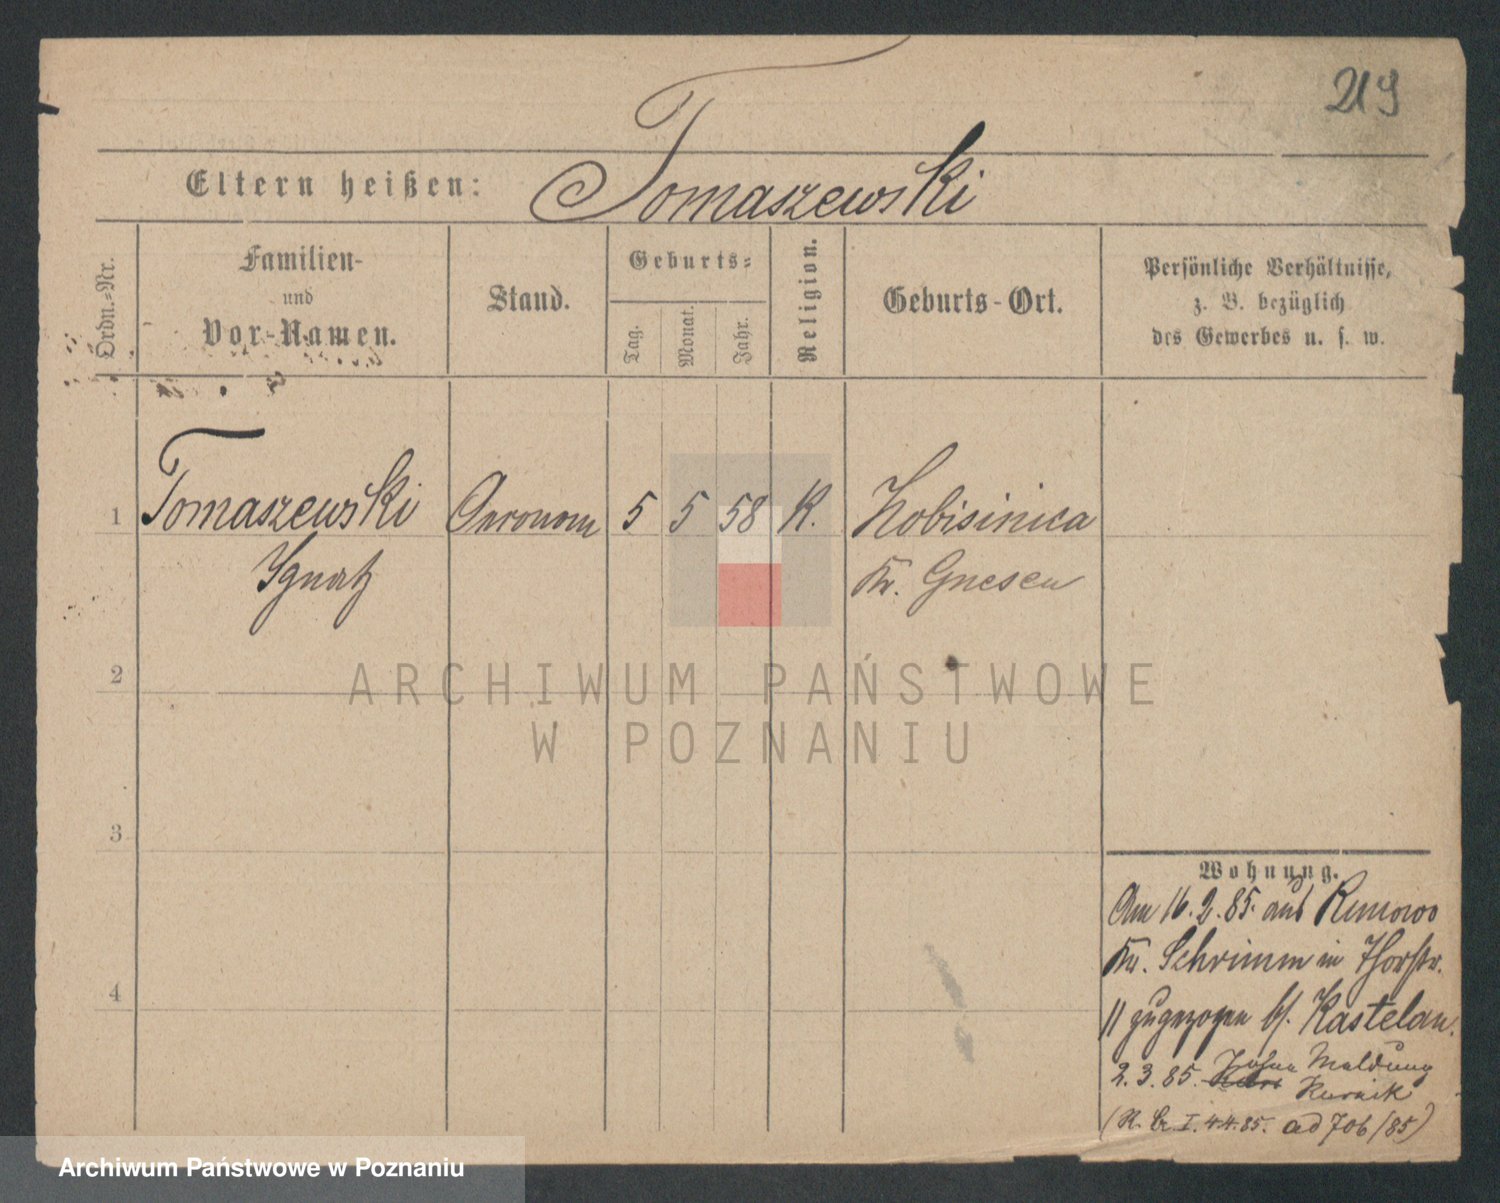 219
Eltern heißen: Tomaszewski
Ordn.-Nr.
Familien-
und
Vor-Namen.
Stand.
Geburts-
Tag.
Monat.
Jahr.
Religion.
Geburts-Ort.
Persönliche Verhältnisse,
z. B. bezüglich
des Gewerbes u. s. w.
1 Tomaszewski 5 5 58 K.
Ignatz Kr. Gnesen
2
ARCHIWUM PAŃSTWOWE
W POZNANIU
3
4
Wohnung.
Am 16.2.85. aus
Kr. Schrimm in Thorstr.
11 zugezogen b/. Kastelan.
2.3.85. Meldung
Kurnik
4.4.85. ad 706/85)
Archiwum Państwowe w Poznaniu